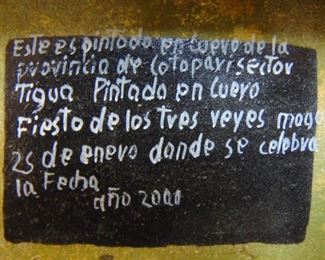 Este es pintado en cuero de la
provincia de Cotopaxi sector
Tigua Pintado en Cuero
Fiesto de los tres reyes mago
25 de enero dande se celebra
la Fecha
año 2000